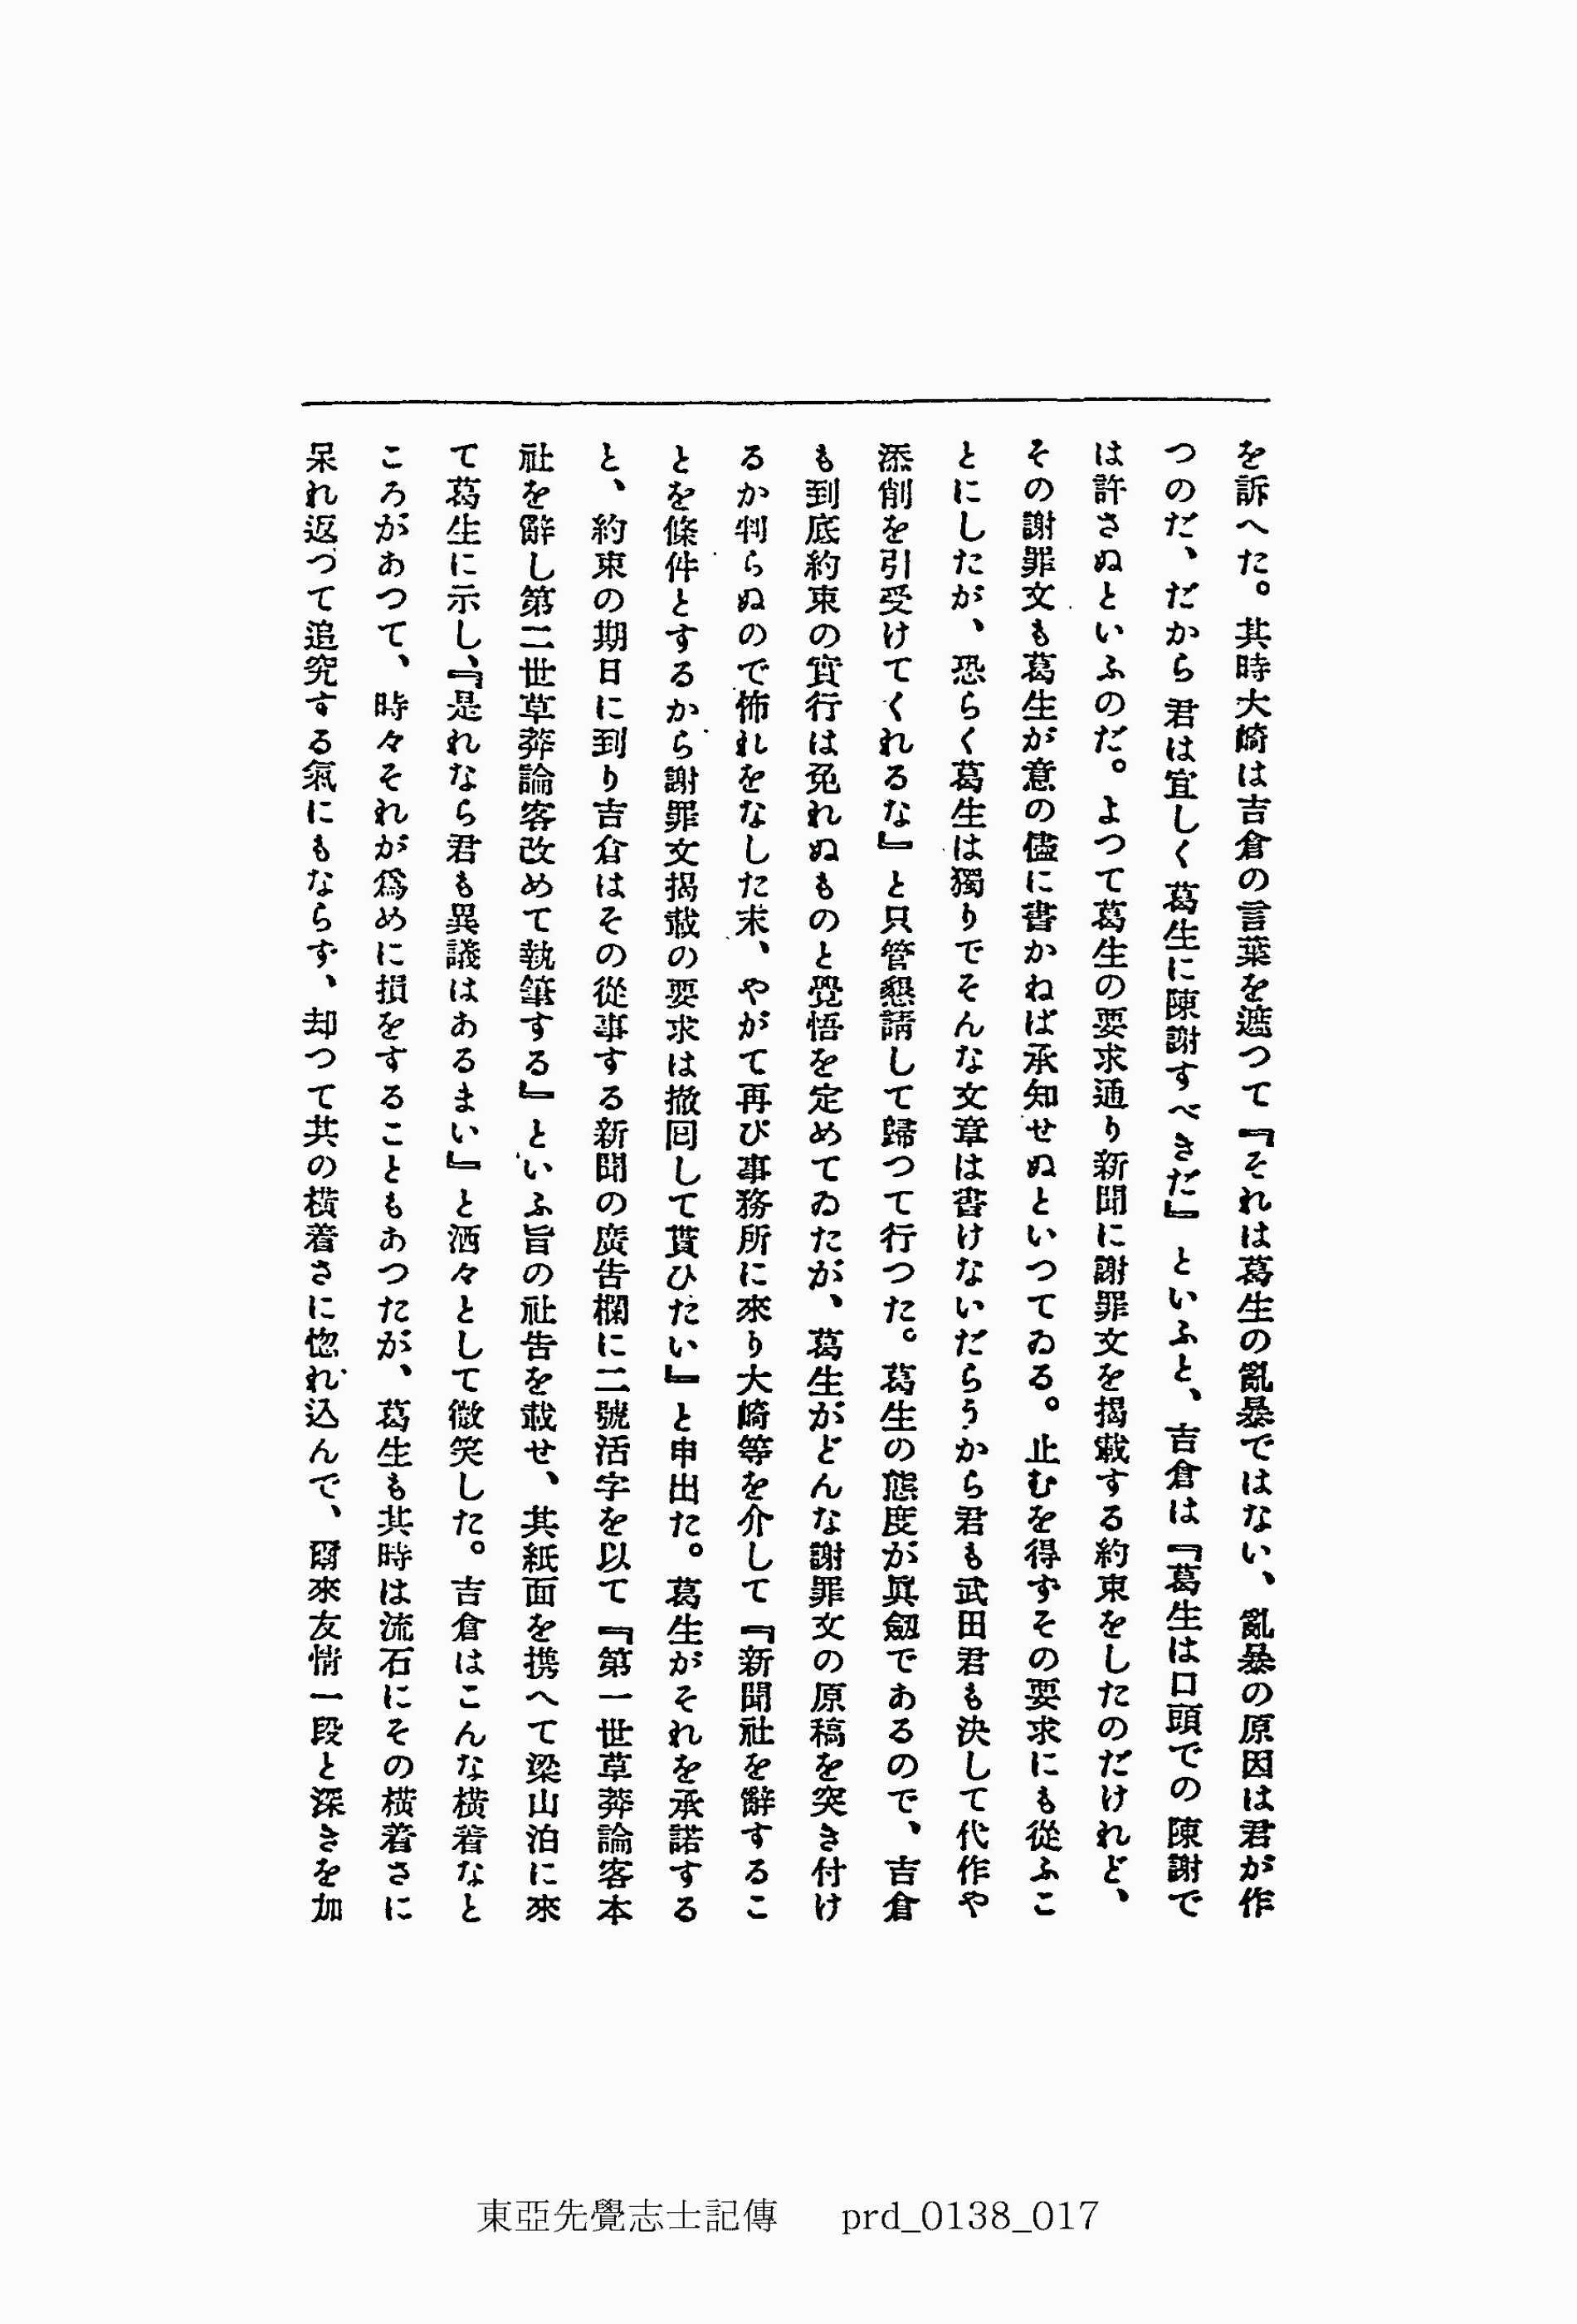 を訴へた。其時大崎は吉倉の言葉を遮つて『それは葛生の亂暴ではない、亂暴の原因は君が作
つのだ、だから君は宜しく葛生に陳謝すべきだ』といふと、吉倉は『葛生は口頭での陳謝で
は許さぬといふのだ。よつて葛生の要求通り新聞に謝罪文を揭載する約束をしたのだけれど、
その謝罪文も葛生が意の儘に書かねば承知せぬといつてゐる。止むを得ずその要求にも從ふこ
とにしたが、恐らく葛生は獨りでそんな文章は書けないだらうから君も武田君も決して代作や
添削を引受けてくれるな』と只管懇請して歸つて行つた。葛生の態度が眞劒であるので、吉倉
も到底約束の實行は免れぬものと覺悟を定めてゐたが、葛生がどんな謝罪文の原稿を突き付け
るか判らぬので怖れをなした末、やがて再び事務所に來り大崎等を介して『新聞社を辭するこ
とを條件とするから謝罪文揭載の要求は撤囘して貰ひたい』と申出た。葛生がそれを承諾する
と、約束の期日に到り吉倉はその從事する新聞の廣告欄に二號活字を以て『第一世草莽論客本
社を辭し第二世草莽論客改めて執筆する』といふ旨の社告を載せ、其紙面を携へて梁山泊に來
て葛生に示し、『是れなら君も異議はあるまい』と洒々として微笑した。吉倉はこんな橫着なと
ころがあつて、時々それが爲めに損をすることもあつたが、葛生も其時は流石にその橫着さに
呆れ返つて追究する氣にもならず、却つて其の橫着さに惚れ込んで、爾來友情一段と深さを加
東亞先覺志士記傳 prd_0138_017